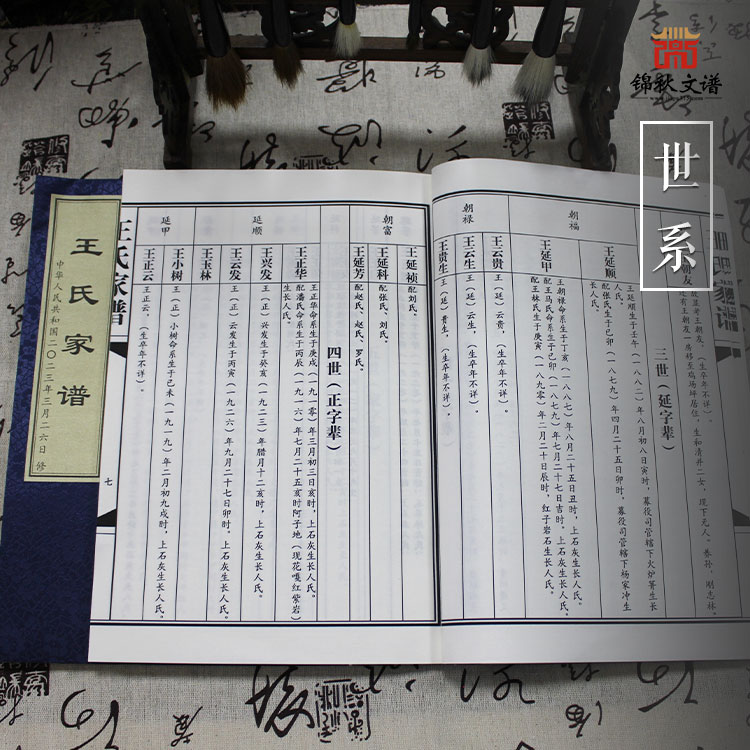 锦秋文谱
世系
王氏家谱
中华人民共和国二〇二三年三月二六日 修
三世（延字辈）
朝福
王延顺
王延顺生于壬午（一八八二）年八月初八日寅时，慕役司管辖下火炉箐生长
人氏。
配张氏生于己卯（一八七九）年四月二十五日卯时，慕役司管辖下杨家冲生
长人氏。
王延甲
王朝禄命系生于丁亥（一八八七）年八月二十五日丑时，上石灰生长人氏。
配王马氏命系生于己卯（一八七九）年八月二十七日吉时，上石灰生长人氏。
配王林氏生于庚寅（一八九〇）年二月二十日辰时，红子岩石生长人氏。
朝禄
王云贵
王（延）云贵，（生卒年不详）。
王云生
王（延）云生，（生卒年不详）。
王贵生
王（延）贵生，（生卒年不详）。
朝富
王延祯
配刘氏。
王延科
配张氏、刘氏。
王延芳
配赵氏、赵氏、罗氏。
四世（正字辈）
延顺
王正华
王正华命系生于庚戌（一九一〇）年三月初三日亥时，上石灰生长人氏。
配潘氏命系生于丙辰（一九一六）年七月二十五亥时阿子地（现花嘎红紫岩）
生长人氏。
王兴发
王（正）兴发生于癸亥（一九二三）年腊月十二亥时，上石灰生长人氏。
王云发
王（正）云发生于丙寅（一九二六）年九月二十七日卯时。上石灰生长人氏。
王玉林
延甲
王小树
王（正）小树命系生于己未（一九一九）年二月初九戌时，上石灰生长人氏。
王正云
王正云，（生卒年不详）。
王氏家谱
七